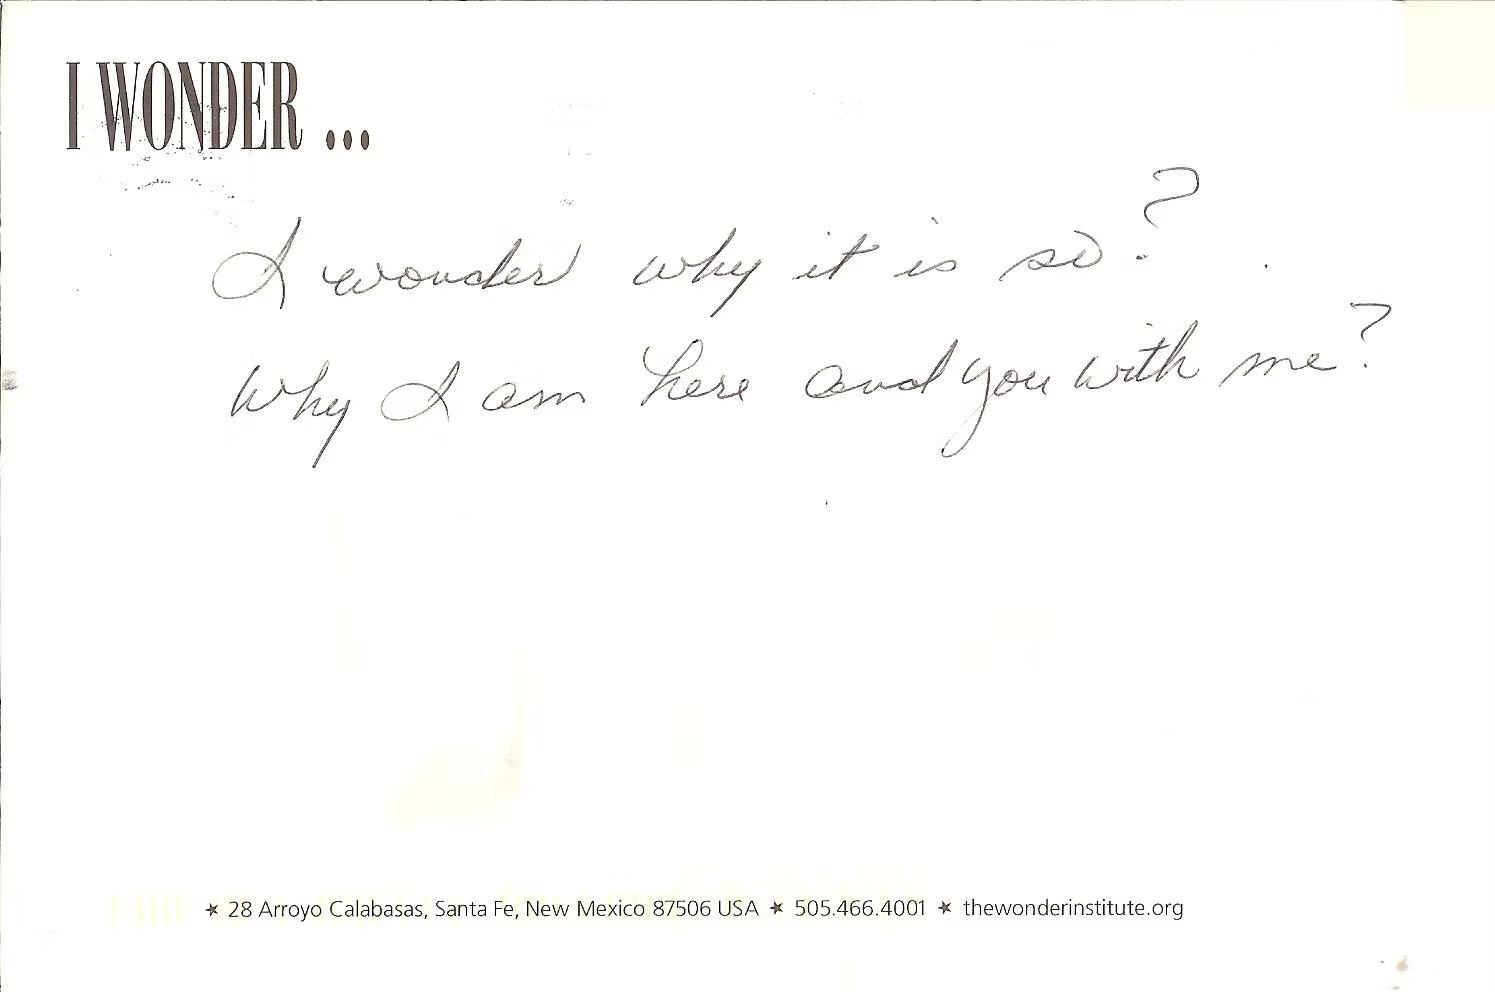 I WONDER ...
I wonder why it is so?
Why I am here and you with me?
★ 28 Arroyo Calabasas, Santa Fe, New Mexico 87506 USA ★ 505.466.4001 ★ thewonderinstitute.org